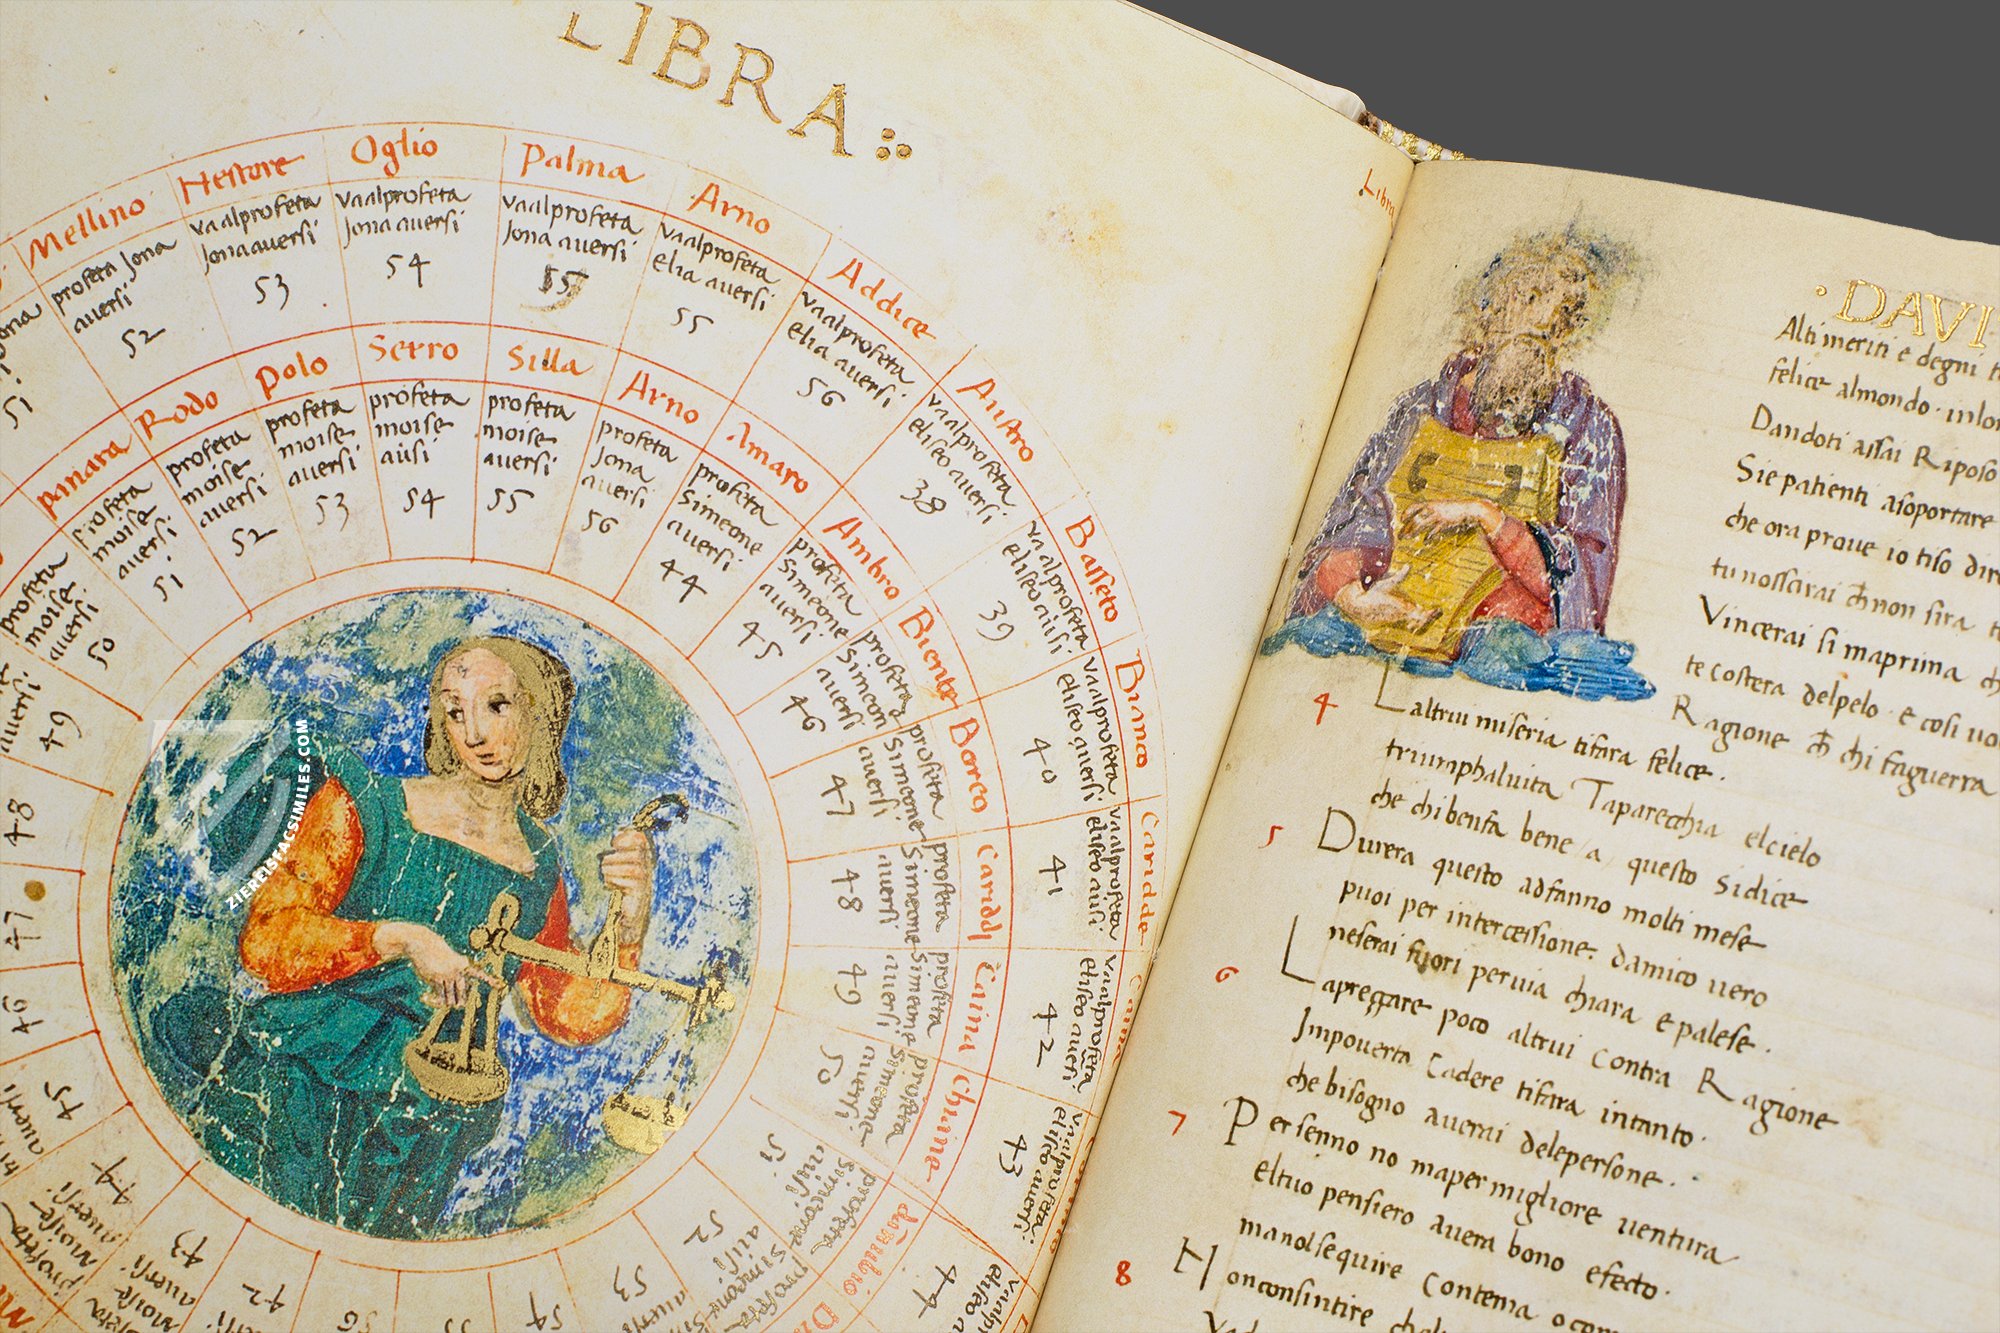 LIBRA
Mellino
profeta Jona
auersi
52
Nestore
va alprofeta
Jona auersi
53
Oglio
va alprofeta
Jona auersi
54
Palma
va alprofeta
Jona auersi
55
Arno
va alprofeta
elia auersi
55
Addice
va alprofeta
elia auersi
56
Austro
va alprofeta
eliseo auersi
38
Basseto
va alprofeta
eliseo auisi
39
Bianco
va alprofeta
eliseo auersi
40
Caridde
va alprofeta
eliseo auisi
41
va alprofeta
eliseo auersi
42
va alprofeta
eliseo auersi
43
44
51
panara
profeta
moise
auersi
51
Rodo
profeta
moise
auersi
52
Polo
profeta
moise
auersi
53
Serro
profeta
moise
auisi
54
Silla
profeta
moise
auersi
55
Arno
profeta
Jona
auersi
56
Amaro
profeta
Simeone
auersi
44
Ambro
profeta
Simeone
auersi
45
Biente
profeta
Simeon
auersi
46
Borco
profeta
Simeone
auersi
47
Cariddi
profeta
Simeone
auersi
48
Caina
profeta
Simeone
auersi
49
Chirine
profeta
Simeone
auersi
50
profeta
Simeone
auisi
51
profeta
Simeone
auisi
52
auersi
53
54
profeta
moise
auersi
50
auersi
49
48
47
46
auersi
45
profeta
moise
auersi
44
profeta
moise
auersi
43
42
ZIEREISFACSIMILES.COM
Libra
DAVI
Alti meriti e degni
felice almondo
Dandoti assai Riposo
Sie patienti asoportare
che ora proue io tiso dire
tu noscirai chnon sira
Vincerai si maprima
te costera delpelo e cosi
Ragione ch chi faguerra
4 Laltrui miseria tifara felice.
triumphaluita Taparecchia elcielo
che chi benfa bene a questo sidice
5 Durera questo adfanno molti mese
puoi per intercessione. damico uero
neserai fuori peruia chiara e palese.
6 Lapreggare poco altrui contra Ragione
Impouerta Cadere tifara intanto.
che bisogno auerai delepersone.
7 Per senno no maper migliore uentura
eltuo pensiero auera bono efecto.
manolsequire contema
8 Nonconsintire